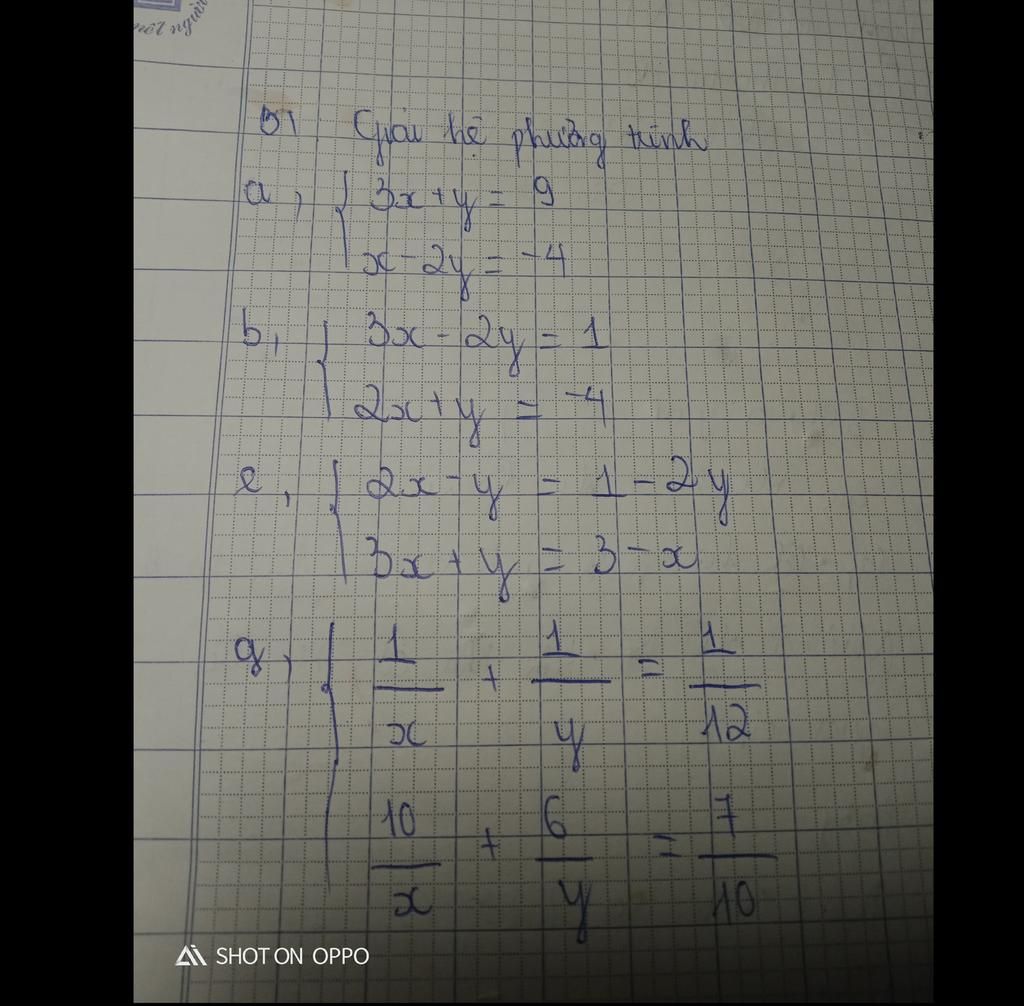 một người
B1 Giải hệ phương trình
a, { 3x + y = 9
x - 2y = -4
b, { 3x - 2y = 1
2x + y = -4
e, { 2x - y = 1 - 2y
3x + y = 3 - x
g, { 1/x + 1/y = 1/12
10/x + 6/y = 7/10
SHOT ON OPPO